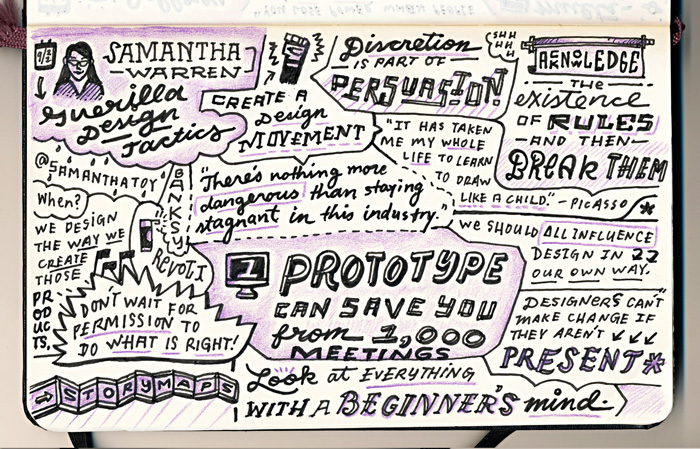 SAMANTHA
WARREN
Guerilla
Design
Tactics
CREATE A
Design
MOVEMENT
Discretion
IS PART OF
PERSUASION
SHHHH
AKNOLEDGE
THE
existence
OF RULES
AND THEN
BREAK THEM
"IT HAS TAKEN
ME MY WHOLE
LIFE TO LEARN
TO DRAW
LIKE A CHILD." - PICASSO
@SAMANTHATOY
When?
WE DESIGN
THE WAY WE
CREATE
THOSE
PR
OD
UC
TS.
BANKSY
REVOLT!
"There's nothing more
dangerous than staying
stagnant in this industry."
WE SHOULD ALL INFLUENCE
DESIGN IN
OUR OWN WAY.
DON'T WAIT FOR
PERMISSION TO
DO WHAT IS RIGHT!
1 PROTOTYPE
CAN SAVE YOU
from 1,000
MEETINGS
DESIGNERS CAN'T
MAKE CHANGE IF
THEY AREN'T
PRESENT*
STORYMAPS
Look at EVERYTHING
WITH A BEGINNER'S mind.